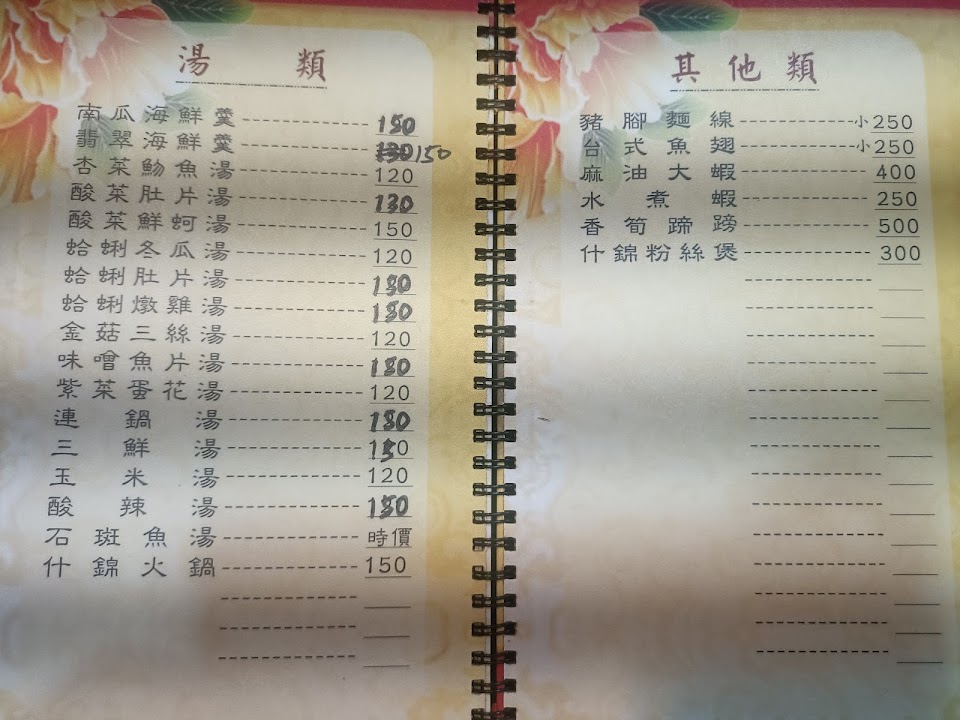 湯類
南瓜海鮮羹 150
翡翠海鮮羹 150
杏菜魩魚湯 120
酸菜肚片湯 130
酸菜鮮蚵湯 150
蛤蜊冬瓜湯 120
蛤蜊肚片湯
蛤蜊燉雞湯
金菇三絲湯 120
味噌魚片湯
紫菜蛋花湯 120
連鍋湯
三鮮湯
玉米湯 120
酸辣湯
石斑魚湯 時價
什錦火鍋 150
其他類
豬腳麵線 小250
台式魚翅 小250
麻油大蝦 400
水煮蝦 250
香筍蹄膀 500
什錦粉絲煲 300